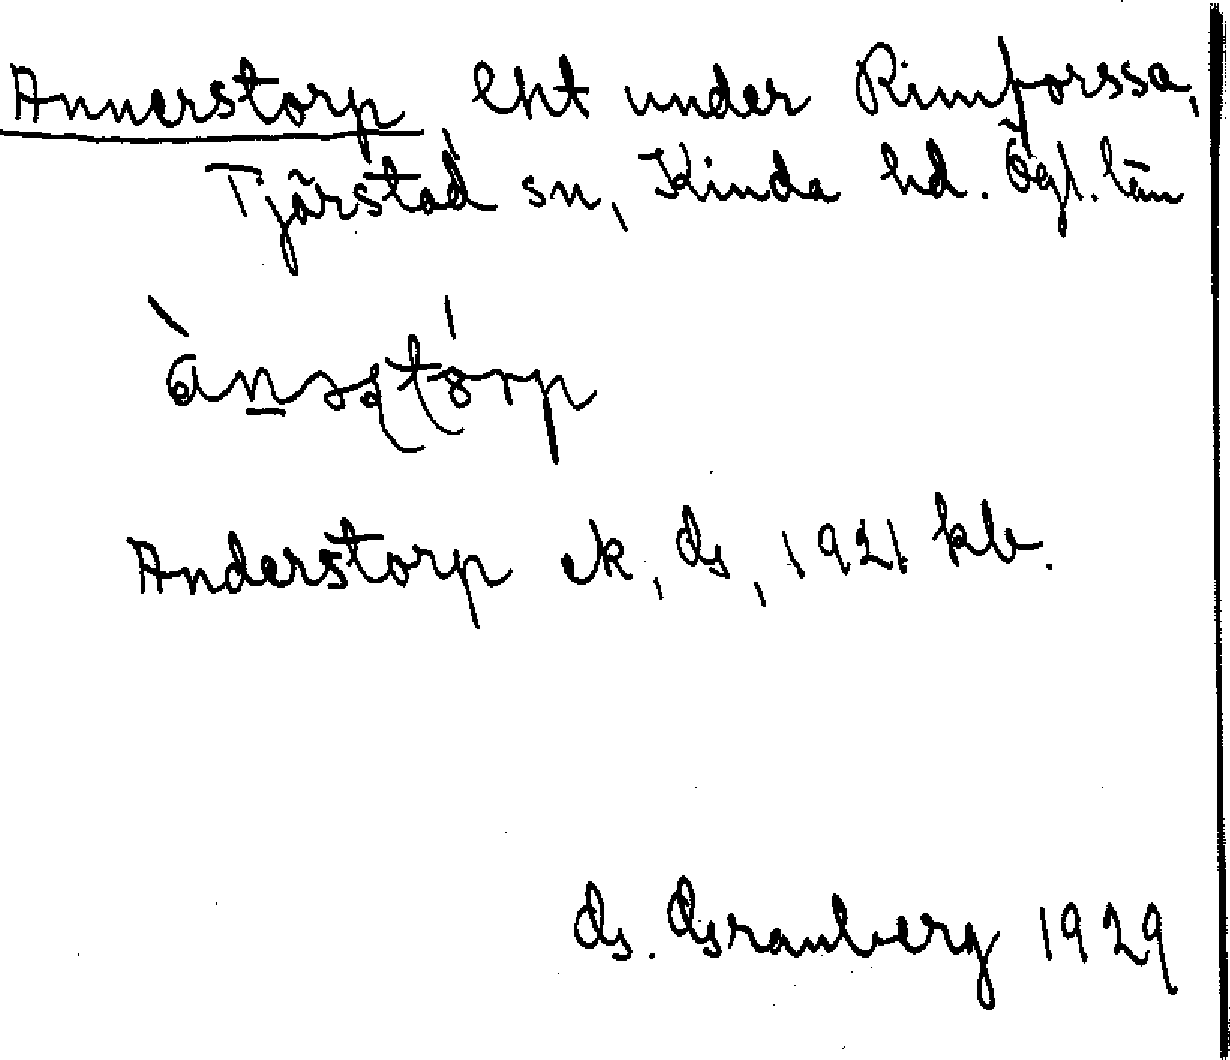 Annerstorp lht under Rimforssa,
Tjärstad sn, Kinda hd. Ögl. län
Anderstorp ek, G, 1921 kb.
G. Granberg 1929